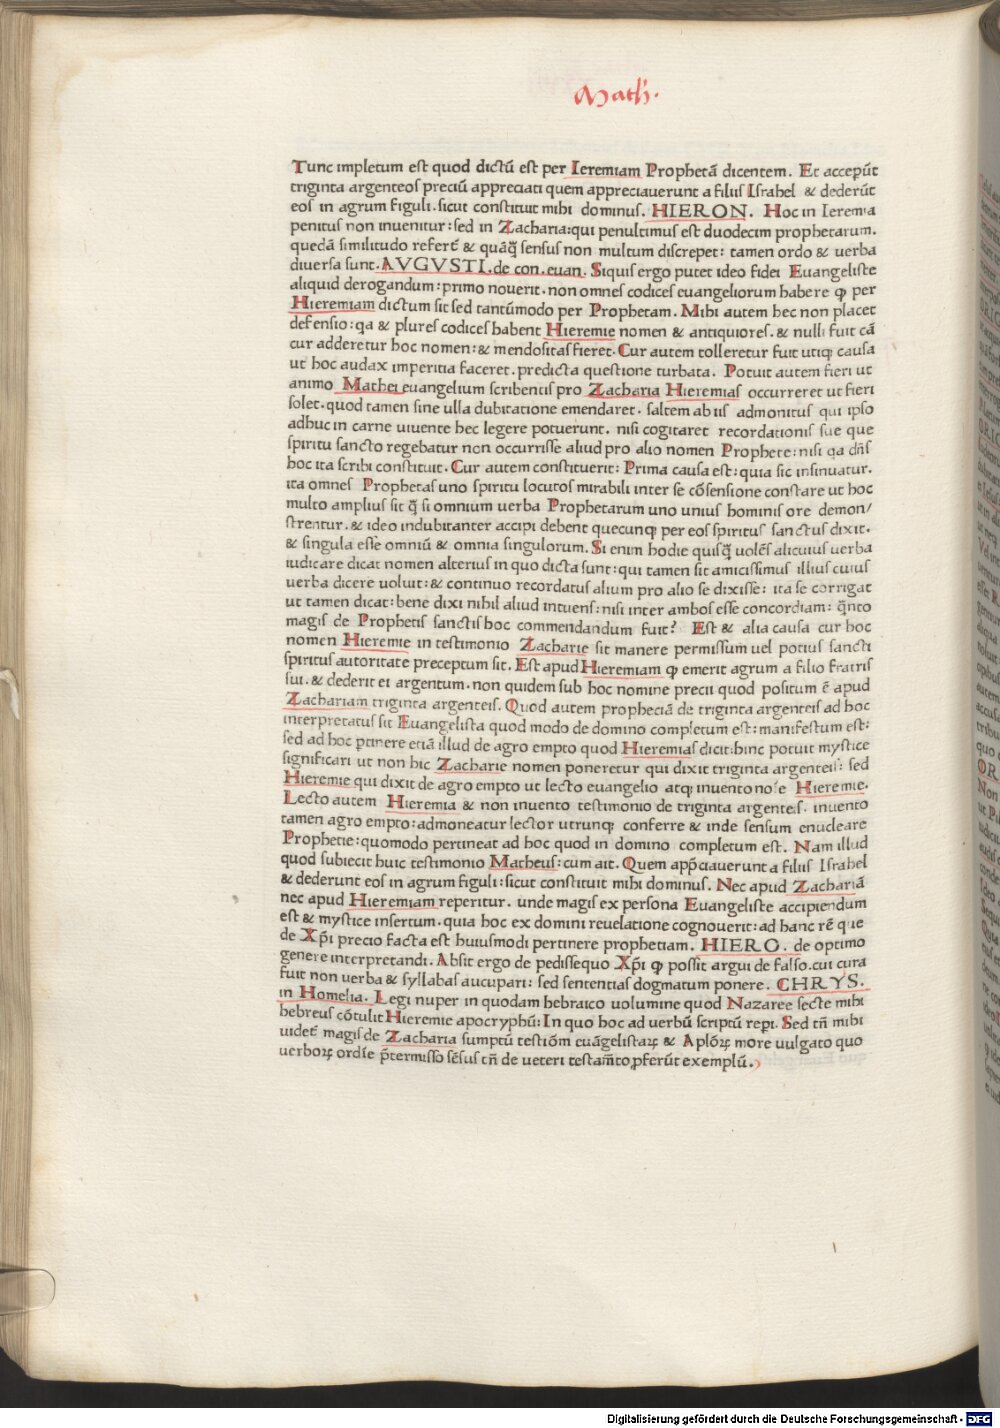 Math.
Tunc impletum est quod dictū est per Ieremiam Prophetā dicentem. Et accepūt
triginta argenteos preciū appreciati quem appreciauerunt a filiis Israhel & dederūt
eos in agrum figuli. sicut constituit mihi dominus. HIERON. Hoc in Ieremia
penitus non inuenitur: sed in Zacharia: qui penultimus est duodecim prophetarum.
quedā similitudo refert̄ & quāq̄ sensus non multum discrepet: tamen ordo & uerba
diuersa sunt. AVGVSTI. de con. euan. Siquis ergo putet ideo fidei Euangeliste
aliquid derogandum: primo nouerit. non omnes codices euangeliorum habere ꝙ per
Hieremiam dictum sit sed tantūmodo per Prophetam. Mihi autem hec non placet
defensio: qa & plures codices habent Hieremie nomen & antiquiores. & nulli fuit cā
cur adderetur hoc nomen: & mendositas fieret. Cur autem tolleretur fuit utiqꝫ causa
ut hoc audax imperitia faceret. predicta questione turbata. Potuit autem fieri ut
animo Mathei euangelium scribentis pro Zacharia Hieremias occurreret ut fieri
solet. quod tamen sine ulla dubitatione emendaret. saltem ab iis admonitus qui ipso
adhuc in carne uiuente hec legere potuerunt. nisi cogitaret recordationis sue que
spiritu sancto regebatur non occurrisse aliud pro alio nomen Prophete: nisi qa dn̄s
hoc ita scribi constituit. Cur autem constituerit: Prima causa est: quia sic insinuatur.
ita omnes Prophetas uno spiritu locutos mirabili inter se cōsensione constare ut hoc
multo amplius sit q̄ si omnium uerba Prophetarum uno unius hominis ore demon/
strentur. & ideo indubitanter accipi debent quecunqꝫ per eos spiritus sanctus dixit.
& singula esse omniū & omnia singulorum. Si enim hodie quisq̄ uolēs alicuius uerba
iudicare dicat nomen alterius in quo dicta sunt: qui tamen sit amicissimus illius cuius
uerba dicere uoluit: & continuo recordatus alium pro alio se dixisse: ita se corrigat
ut tamen dicat: bene dixi nihil aliud intuens: nisi inter ambos esse concordiam: q̄nto
magis de Prophetis sanctis hoc commendandum fuit? Est & alia causa cur hoc
nomen Hieremie in testimonio Zacharie sit manere permissum uel potius sancti
spiritus autoritate preceptum sit. Est apud Hieremiam ꝙ emerit agrum a filio fratris
sui. & dederit ei argentum. non quidem sub hoc nomine precii quod positum ē apud
Zachariam triginta argenteis. Quod autem prophetiā de triginta argenteis ad hoc
interpretatus sit Euangelista quod modo de domino completum est: manifestum est:
sed ad hoc ptinere etiā illud de agro empto quod Hieremias dicit. hinc potuit mystice
significari ut non hic Zacharie nomen poneretur qui dixit triginta argenteis: sed
Hieremie qui dixit de agro empto ut lecto euangelio atqꝫ inuento no'e Hieremie.
Lecto autem Hieremia & non inuento testimonio de triginta argenteis. inuento
tamen agro empto: admoneatur lector utrunqꝫ conferre & inde sensum enucleare
Prophetie: quomodo pertineat ad hoc quod in domino completum est. Nam illud
quod subiecit huic testimonio Matheus: cum ait. Quem app̄ciauerunt a filiis Israhel
& dederunt eos in agrum figuli: sicut constituit mihi dominus. Nec apud Zachariā
nec apud Hieremiam reperitur. unde magis ex persona Euangeliste accipiendum
est & mystice insertum. quia hoc ex domini reuelatione cognouerit: ad hanc rē que
de Xp̄i precio facta est huiusmodi pertinere prophetiam. HIERO. de optimo
genere interpretandi. Absit ergo de pedissequo Xp̄i ꝙ possit argui de falso. cui cura
fuit non uerba & syllabas aucupari: sed sententias dogmatum ponere. CHRYS.
in Homelia. Legi nuper in quodam hebraico uolumine quod Nazaree secte mihi
hebreus cōtulit Hieremie apocryphū: In quo hoc ad uerbū scriptū repi. Sed tn̄ mihi
uidet̄ magis de Zacharia sumptū testiōm euāgelistaꝝ & Aploꝝ more uulgato quo
uerboꝝ ordīe p̄termisso sēsus tn̄ de ueteri testam̄to ꝓferūt exemplū.
Digitalisierung gefördert durch die Deutsche Forschungsgemeinschaft - DFG